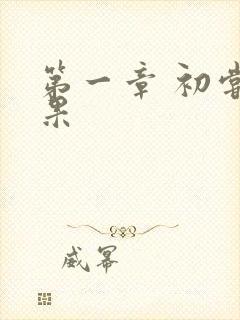 第一章 初尝
果
威幂